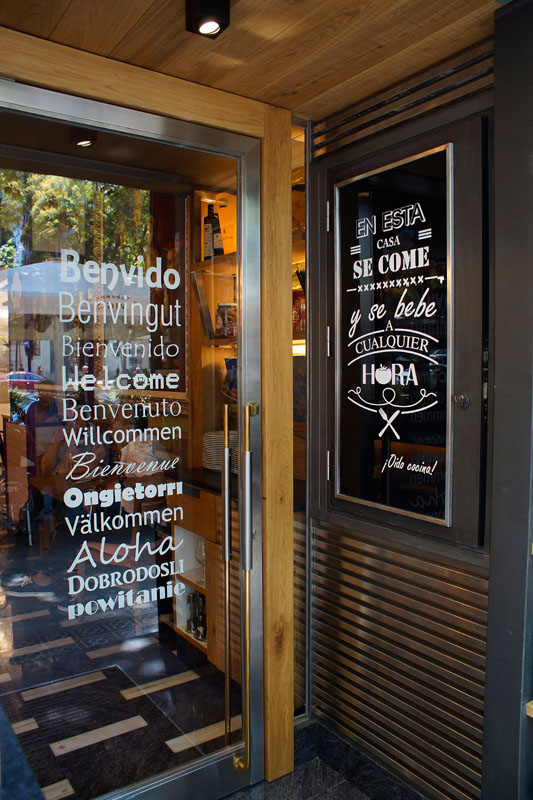 Benvido
Benvingut
Bienvenido
Welcome
Benvenuto
Willcommen
Bienvenue
Ongietorri
Välkommen
Aloha
DOBRODOSLI
powitanie
EN ESTA
CASA
SE COME
xxxxxxxxxxxx
y se bebe
A
CUALQUIER
HORA
¡Oído cocina!